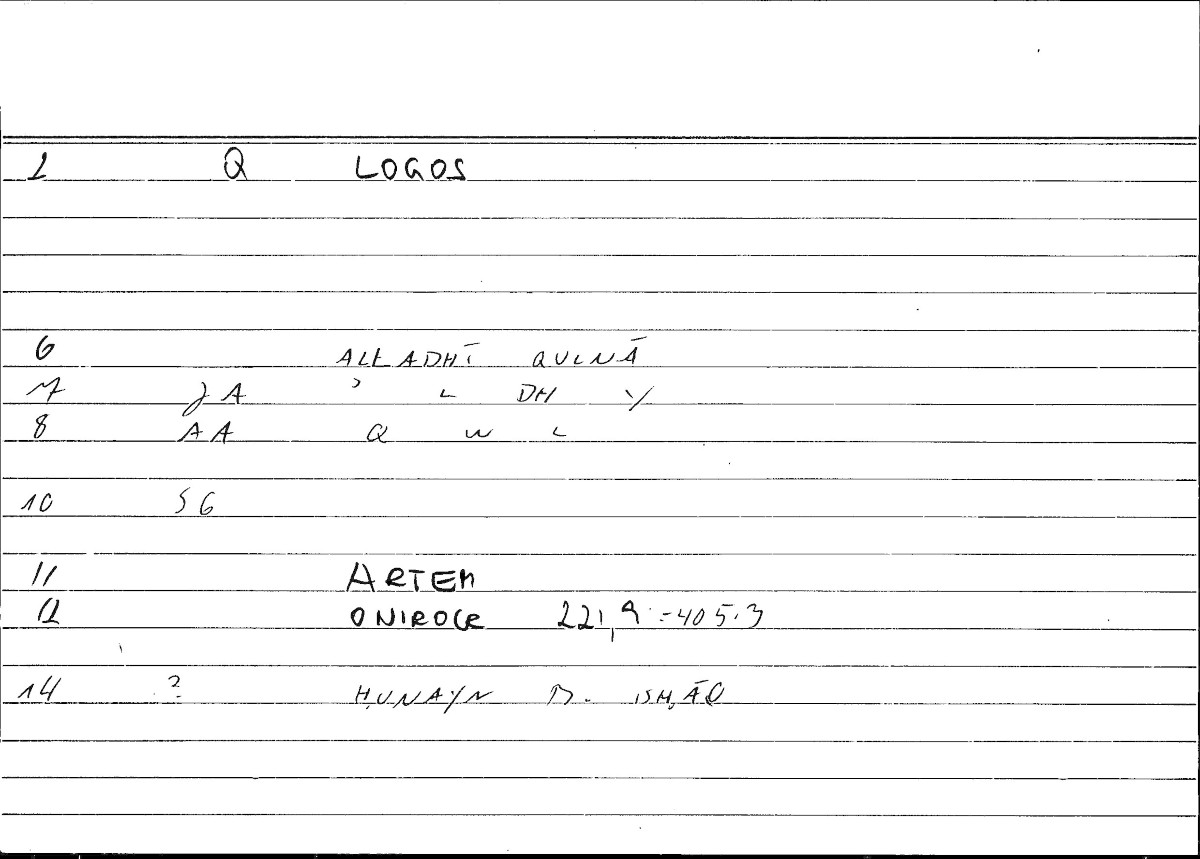 1 Q LOGOS
6 ALLADHĪ QULNĀ
7 JA ʾ L DH Y
8 AA Q W L
10 SG
11 ARTEM
12 ONIROCR 221,9 = 405.3
14 ? ḤUNAYN B. ISḤĀQ